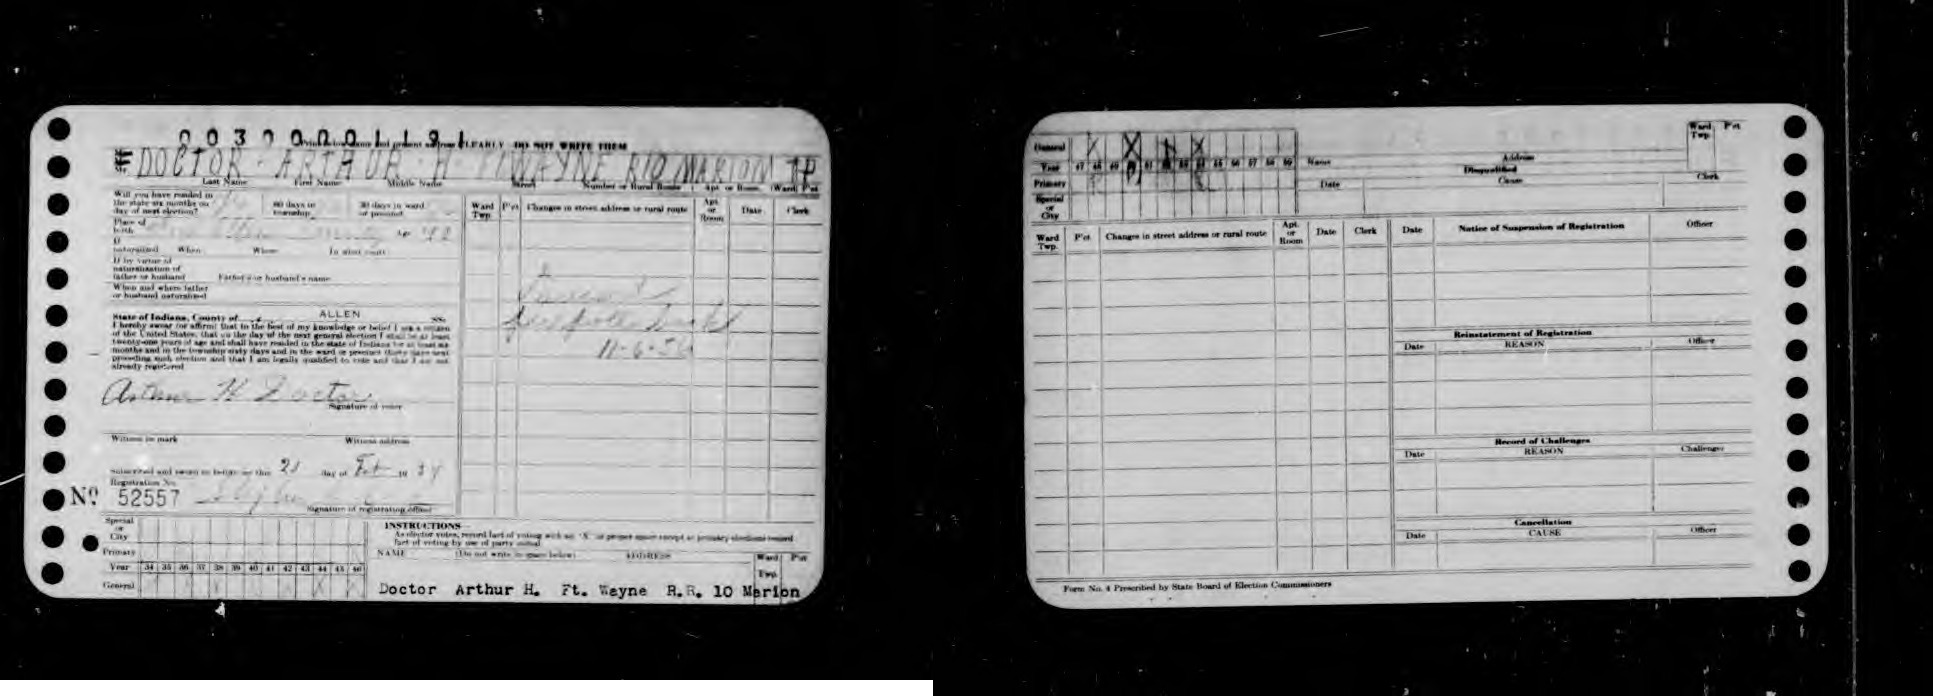 00300001191
Print your name and present address CLEARLY DO NOT WRITE THEM
Mr. DOCTOR - ARTHUR - H - FT WAYNE R10 MARION TP
Last Name First Name Middle Name Street Number or Rural Route Apt. or Room. Ward Pct
Will you have resided in the state six months on day of next election? 60 days in township 30 days in ward or precinct
Place of birth County Age
If naturalized When Where In what court
If by virtue of naturalization of father or husband Father's or husband's name
When and where father or husband naturalized
State of Indiana, County of ALLEN ss:
I hereby swear (or affirm) that to the best of my knowledge or belief I am a citizen
of the United States, that on the day of the next general election I shall be at least
twenty-one years of age and shall have resided in the state of Indiana for at least six
months and in the township sixty days and in the ward or precinct thirty days next
preceding such election and that I am legally qualified to vote and that I am not
already registered
Arthur H Doctor
Signature of voter
Witness to mark Witness address
Subscribed and sworn to before me this 21 day of Feb 1934
Registration No.
No 52557
Signature of registrating officer
Ward Twp. P'ct Changes in street address or rural route Apt. or Room Date Clerk
11-6-56
Special or City
Primary
Year 34 35 36 37 38 39 40 41 42 43 44 45 46
General
INSTRUCTIONS
As elector votes, record fact of voting with an "X" in proper space except in primary elections record
fact of voting by use of party initial
NAME (Do not write in space below) ADDRESS Ward Twp. P'ct
Doctor Arthur H. Ft. Wayne R.R. 10 Marion
General
Year 47 48 49 50 51 52 53 54 55 56 57 58 59
Primary
Special or City
Name Address Ward Twp. P'ct
Disqualified
Date Cause Clerk
Ward Twp. P'ct Changes in street address or rural route Apt. or Room Date Clerk
Date Notice of Suspension of Registration Officer
Reinstatement of Registration
Date REASON Officer
Record of Challenges
Date REASON Challenger
Cancellation
Date CAUSE Officer
Form No. 4 Prescribed by State Board of Election Commissioners